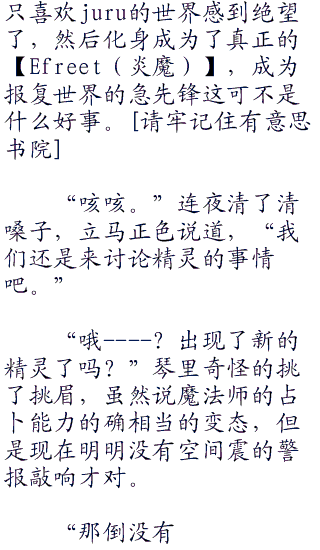 只喜欢juru的世界感到绝望
了，然后化身成为了真正的
【Efreet（炎魔）】，成为
报复世界的急先锋这可不是
什么好事。[请牢记住有意思
书院]
“咳咳。”连夜清了清
嗓子，立马正色说道，“我
们还是来讨论精灵的事情
吧。”
“哦----？出现了新的
精灵了吗？”琴里奇怪的挑
了挑眉，虽然说魔法师的占
卜能力的确相当的变态，但
是现在明明没有空间震的警
报敲响才对。
“那倒没有